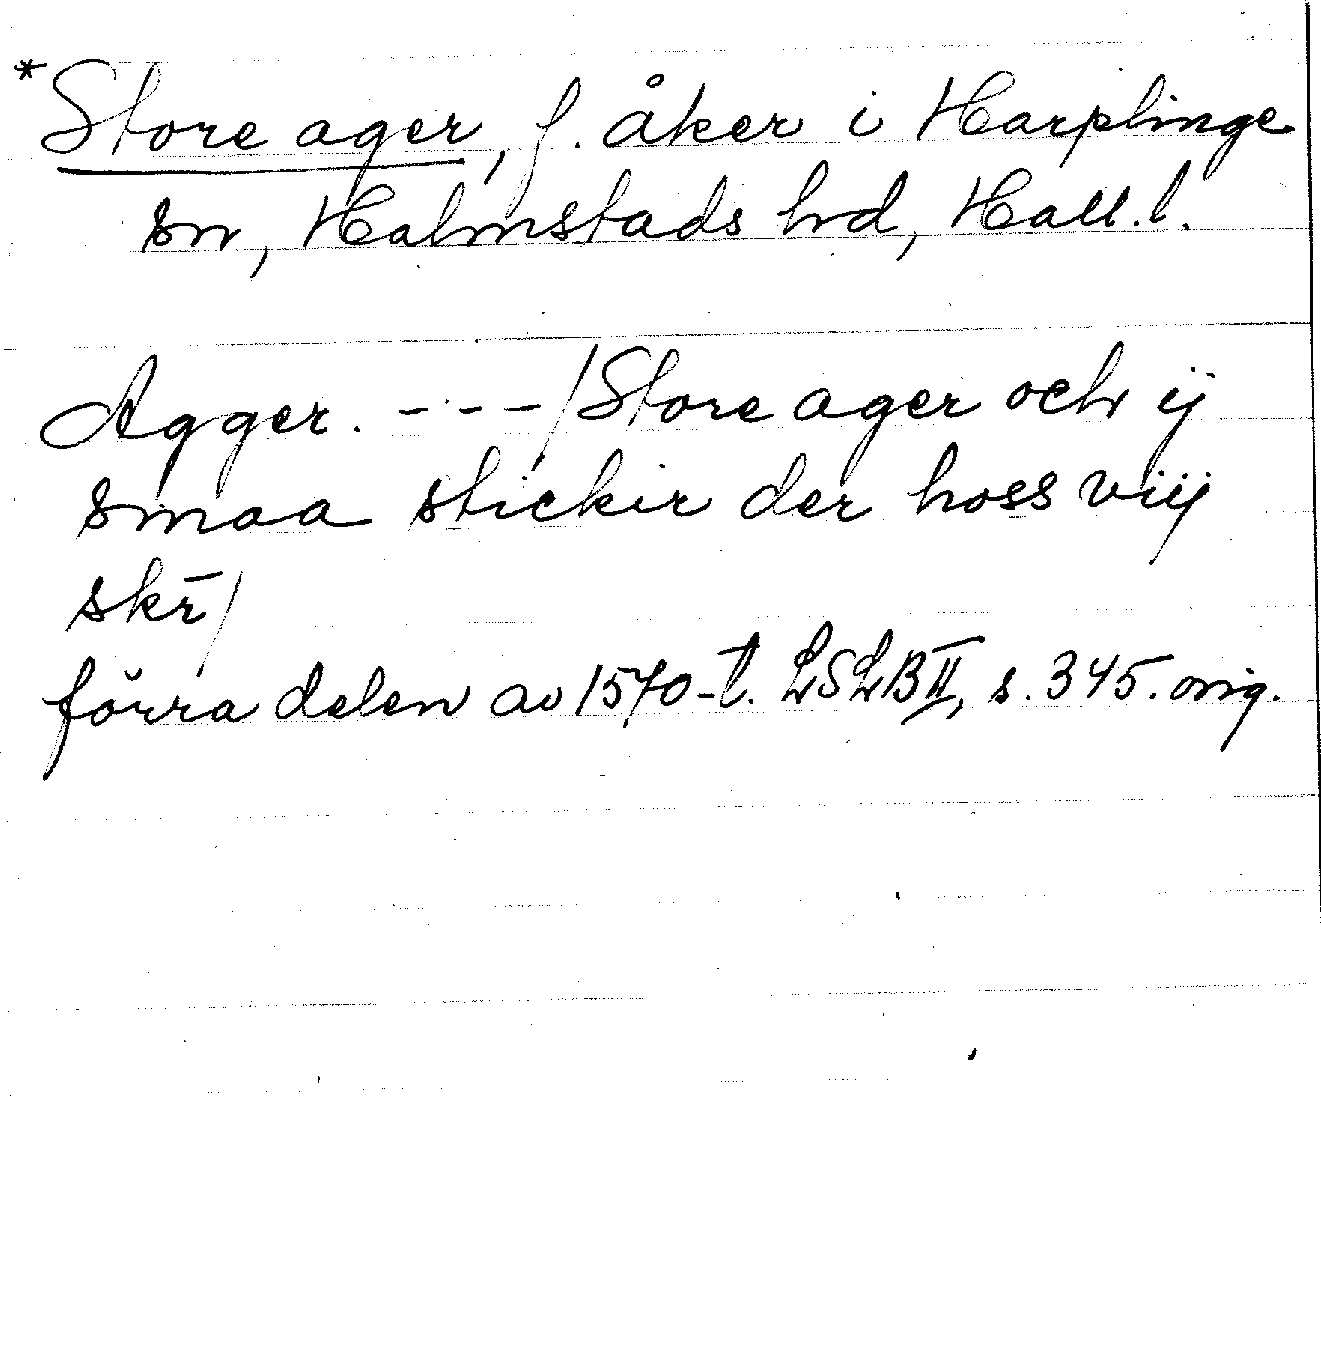 *Store ager, f. åker i Harplinge
sn, Halmstads hrd, Hall.l.
Agger. - - - /Store ager och ij
smaa stickir der hoss viij
skr̄/
förra delen av 1570-t. LSLB II, s. 345. orig.